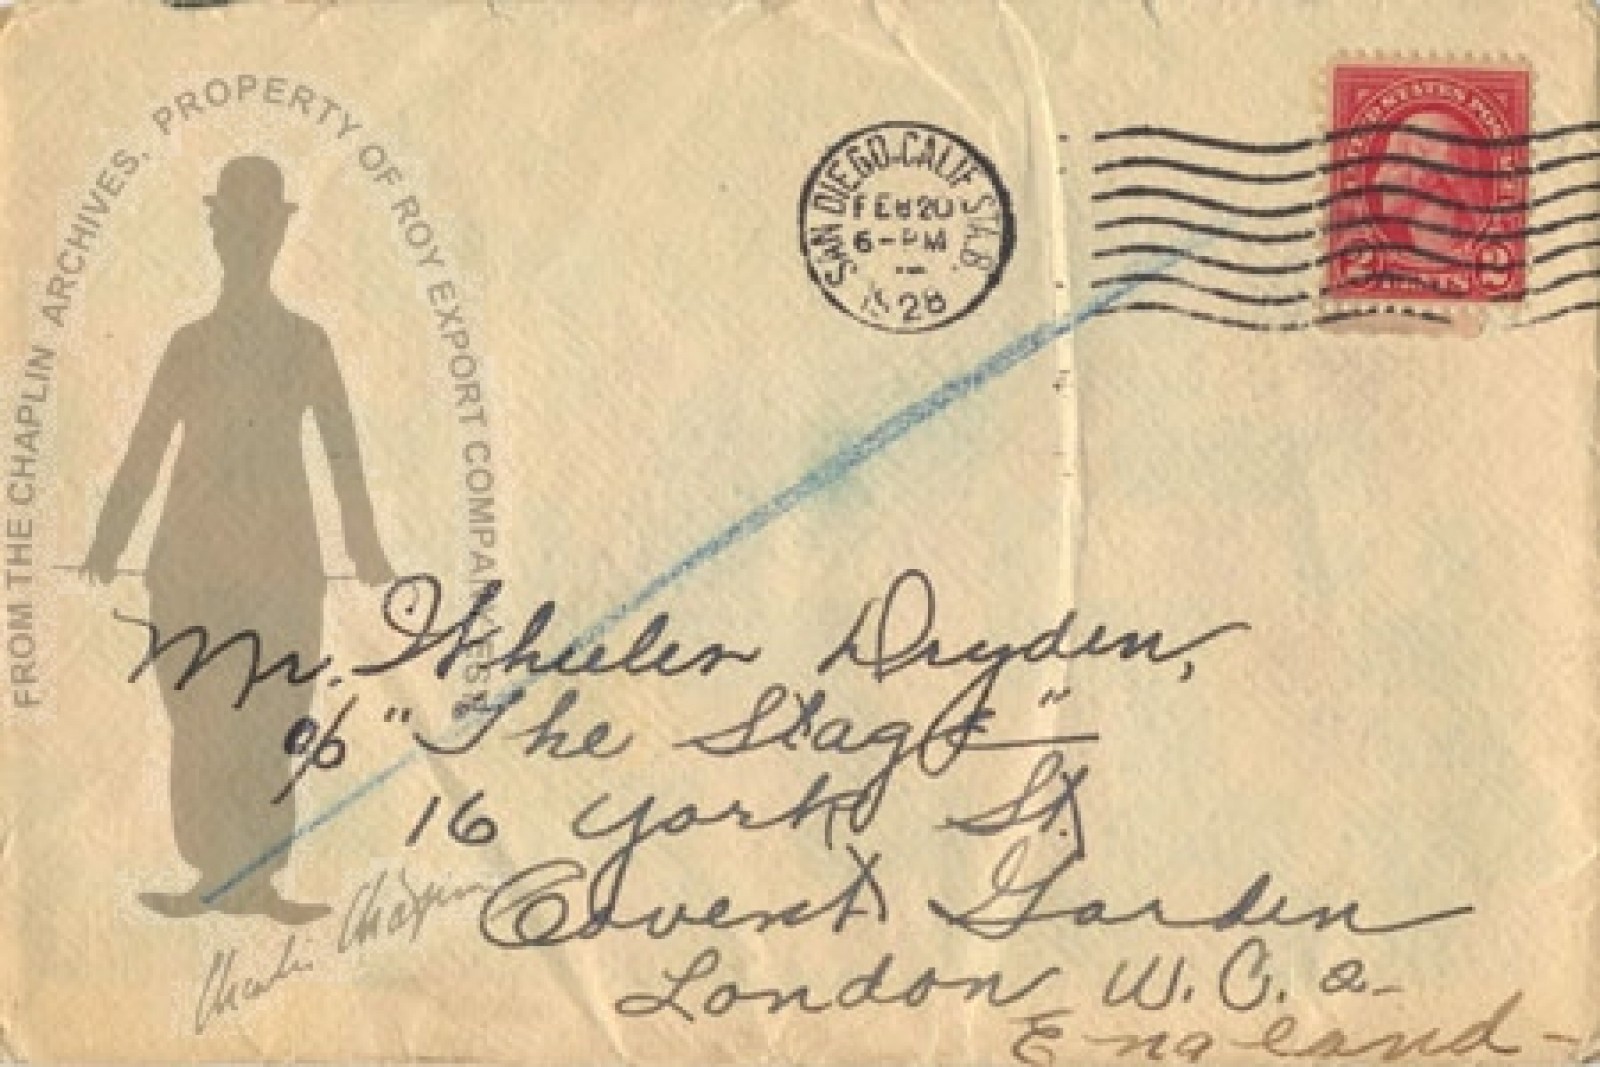 FROM THE CHAPLIN ARCHIVES, PROPERTY OF ROY EXPORT COMPANY EST.
SAN DIEGO, CALIF STA.B.
FEB 20
6-PM
1928
UNITED STATES POSTAGE
2 CENTS 2
Mr. Wheeler Dryden,
c/o "The Stage"
16 York St.
Covent Garden
London W.C.2
England-
Charlie Chaplin